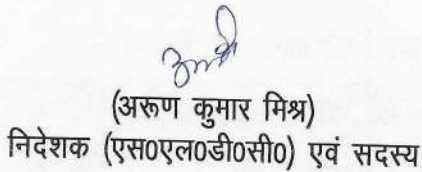 (अरूण कुमार मिश्र)
निदेशक (एस0एल0डी0सी0) एवं सदस्य